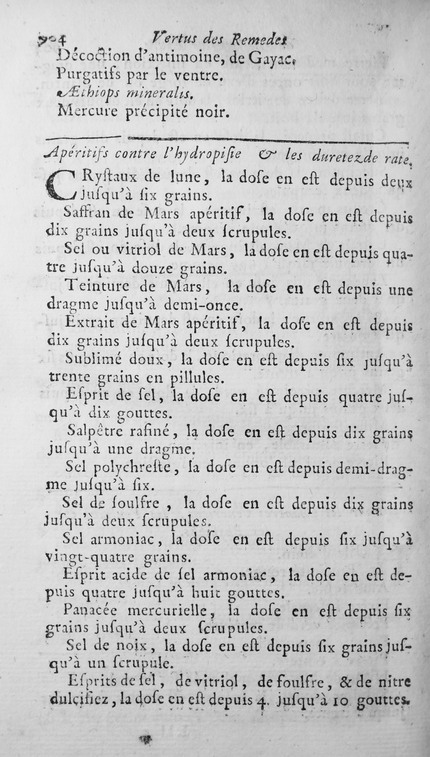 904 Vertus des Remedes
Décoction d'antimoine, de Gayac.
Purgatifs par le ventre.
Æthiops mineralis.
Mercure précipité noir.
Apéritifs contre l'hydropiſie & les duretez de rate.
CRyſtaux de lune, la doſe en eſt depuis deux
juſqu'à ſix grains.
Saffran de Mars apéritif, la doſe en eſt depuis
dix grains juſqu'à deux ſcrupules.
Sel ou vitriol de Mars, la doſe en eſt depuis qua-
tre juſqu'à douze grains.
Teinture de Mars, la doſe en eſt depuis une
dragme juſqu'à demi-once.
Extrait de Mars apéritif, la doſe en eſt depuis
dix grains juſqu'à deux ſcrupules.
Sublimé doux, la doſe en eſt depuis ſix juſqu'à
trente grains en pillules.
Eſprit de ſel, la doſe en eſt depuis quatre juſ-
qu'à dix gouttes.
Salpêtre rafiné, la doſe en eſt depuis dix grains
juſqu'à une dragme.
Sel polychreſte, la doſe en eſt depuis demi-drag-
me juſqu'à ſix.
Sel de ſoulfre, la doſe en eſt depuis dix grains
juſqu'à deux ſcrupules.
Sel armoniac, la doſe en eſt depuis ſix juſqu'à
vingt-quatre grains.
Eſprit acide de ſel armoniac, la doſe en eſt de-
puis quatre juſqu'à huit gouttes.
Panacée mercurielle, la doſe en eſt depuis ſix
grains juſqu'à deux ſcrupules.
Sel de noix, la doſe en eſt depuis ſix grains juſ-
qu'à un ſcrupule.
Eſprits de ſel, de vitriol, de ſoulfre, & de nitre
dulçifiez, la doſe en eſt depuis 4. juſqu'à 10 gouttes.